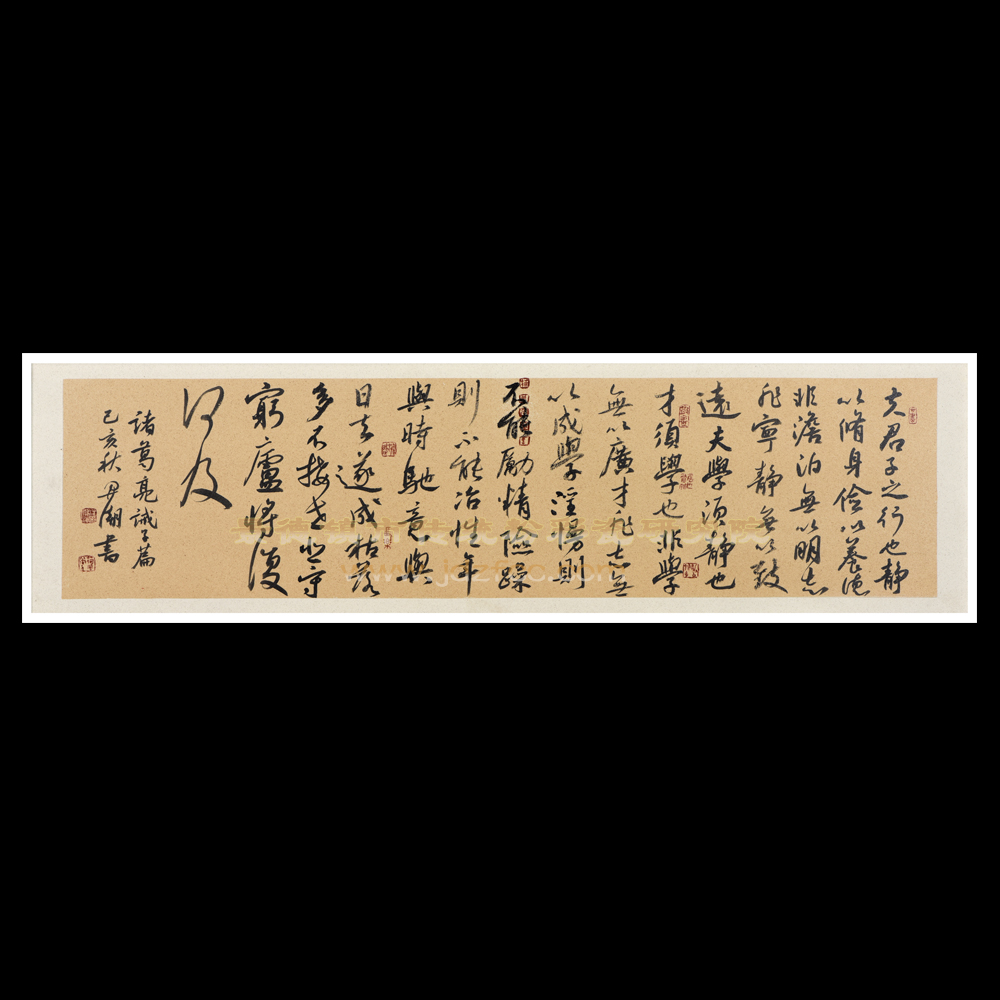 夫君子之行也靜
以脩身儉以養德
非澹泊無以明志
非寧靜無以致
遠夫學須靜也
才須學也非學
無以廣才非志無
以成學淫慢則
不能勵精險躁
則不能冶性年
與時馳意與
日去遂成枯落
多不接世悲守
窮廬將復
何及
諸葛亮誡子篇
己亥秋尹潮書
www.jdzfgc.com